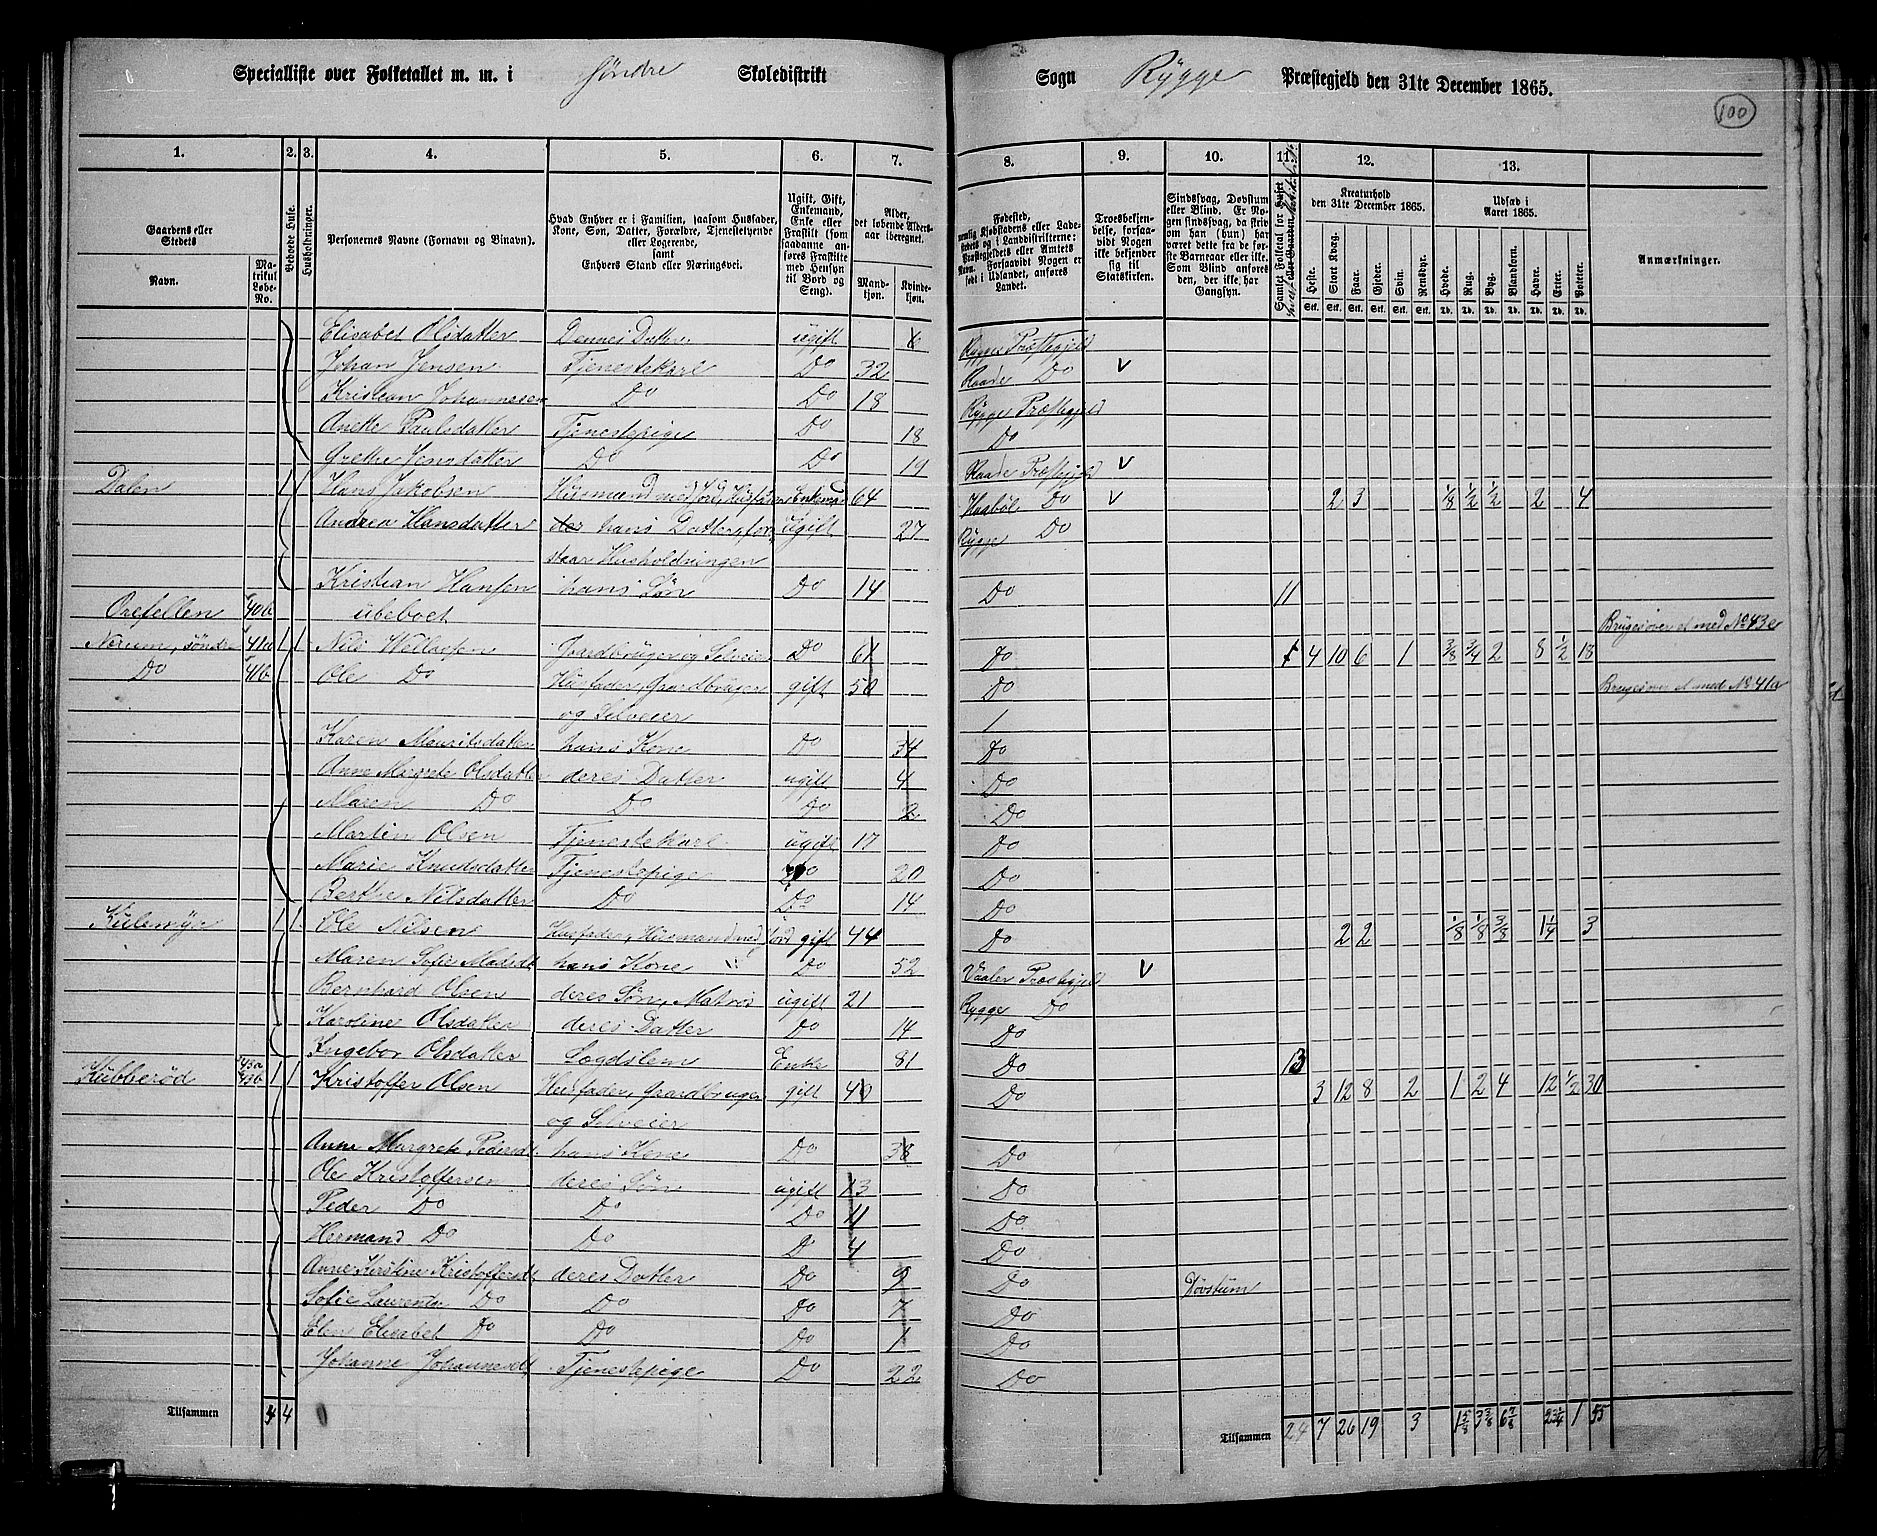 Specialliste over Folketallet m. m. i Søndre Skoledistrikt Sogn Rygge Præstegjeld den 31te December 1865.
100
1. 2. 3. 4. 5. 6. 7. 8. 9. 10. 11. 12. 13.
Gaardens eller Stedets
Navn.
Matrikul Løbe-No.
Beboede Huse.
Husholdninger.
Personernes Navne (Fornavn og Binavn).
Hvad Enhver er i Familien, saasom Husfader, Kone, Søn, Datter, Forældre, Tjenestetyende eller Logerende, samt Enhvers Stand eller Næringsvei.
Ugift, Gift, Enkemand, Enke eller Fraskilt (som saadanne anføres Fraskilte med Hensyn til Bord og Seng).
Alder, det løbende Alders-aar iberegnet.
Mandkjøn. Kvindekjøn.
Fødested, nemlig Kjøbstadens eller Ladestedets og i Landdistrikterne: Præstegjeldets eller Amtets Navn. Forsaavidt Nogen er født i Udlandet, anføres Landet.
Troesbekjendelse, forsaavidt Nogen ikke bekjender sig til Statskirken.
Sindssvag, Døvstum eller Blind. Er Nogen sindssvag, da skriv om han (hun) har været dette fra de første Barneaar eller ikke. Som Blind anføres den, der ikke har Gangsyn.
Kreaturhold den 31te December 1865.
Heste. Stort Kvæg. Faar. Gjeder. Svin. Rensdyr.
Udsæd i Aaret 1865.
Hvede. Rug. Byg. Blandkorn. Havre. Erter. Poteter.
Anmærkninger.
Elisabet Olsdatter Dennes Datter ugift 6 Rygge Præstegjeld
Johan Jensen Tjenestekarl Do 32 Raade Do V
Kristian Johannesen Do Do 18 Rygge Præstegjeld
Anette Paulsdatter Tjenestepige Do 18 Do
Grethe Jensdatter Do Do 19 Raade Præstegjeld V
Dalen 1 1 Hans Jakobsen Husmand med Jord, Husfader Enkem. 64 Haabøl Do V 2 3 1/8 1/2 1/2 2 4
Andrea Hansdatter hans Datter, fore- ugift 27 Rygge Do
staar Husholdningen
Kristian Hansen hans Søn Do 14 Do 11
Orefellen 40b ubeboet Brugesover et med No 43e
Norum, søndre 41a 1 1 Nils Willarsen Gaardbruger og Selveier Do 61 Do 4 10 6 1 3/8 3/4 2 8 1/2 18
Do 41b Ole Do Husfader, Gaardbruger gift 50 Do Brugesover et med No 41a
og Selveier 1
Karen Mauritsdatter hans Kone Do 34 Do
Anne Margrete Olsdatter deres Datter ugift 4 Do
Maren Do Do Do 2 Do
Martin Olsen Tjenestekarl ugift 17 Do
Marie Knudsdatter Tjenestepige Do 20 Do
Berthe Nilsdatter Do Do 14 Do
Kulemyr 1 1 Ole Nilsen Husfader, Husmand med Jord gift 44 Do 2 2 1/8 1/8 3/8 1 1/4 3
Maren Sofie hans Kone Do 52 Vaaler Præstegjeld V
Bernhard Olsen deres Søn, Matros ugift 21 Rygge Do
Karoline Olsdatter deres Datter Do 14 Do
Ingebor Olsdatter Logdslem Enke 81 Do 13
Kubberød 43a 43b 1 1 Kristoffer Olsen Husfader, Gaardbruger gift 40 Do 3 12 8 2 1 2 4 12 1/2 30
og Selveier
Anne Margrete Pedersdt hans Kone Do 38 Do
Ole Kristoffersen deres Søn ugift 13 Do
Peder Do Do Do 11 Do
Hermand Do Do D 4 Do
Anne Kirstine Kristoffersdt deres Datter Do 9 Do Døvstum
Sofie Laurentse Do Do Do 7 Do
Elen Elisabet Do Do Do 1 Do
Johanne Johannesdt Tjenestepige Do 22 Do
Tilsammen 4 4 Tilsammen 24 7 26 19 3 1 5/8 3 3/8 6 7/8 23 1/4 1 55